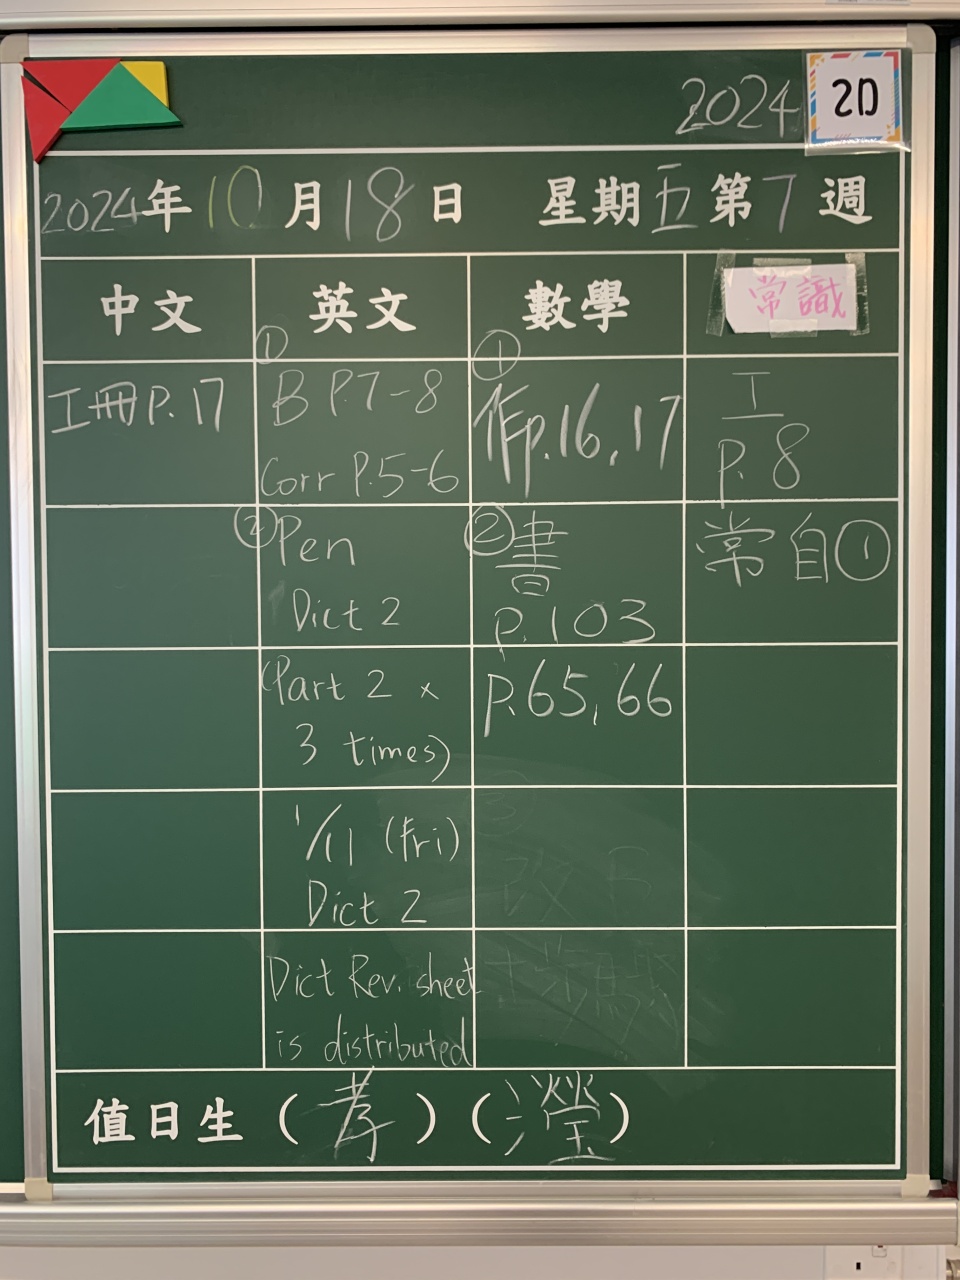 2024
2D
2024年10月18日 星期五第7週
中文 英文 數學 常識
工冊P.17
① B P.7-8
Corr P.5-6
① 作p.16,17
工
P.8
② Pen
Dict 2
② 書
P.103
常自①
(Part 2 x
3 times)
P.65,66
1/11 (Fri)
Dict 2
Dict Rev. sheet
is distributed
值日生(孝)(瀅)